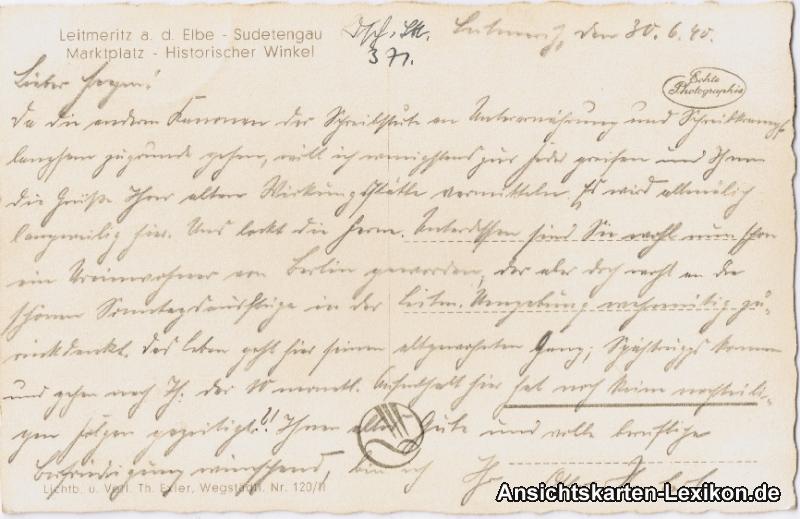 Leitmeritz a. d. Elbe - Sudetengau
Marktplatz - Historischer Winkel
Leitmeritz, den 30.6.40.
371.
Echte
Photographie
Lieber
Da die anderen Kanonen der Schreibstube an Unterernährung und Schreibkrampf
langsam zugrunde gehen, will ich wenigstens zur Feder greifen und Ihnen
die Grüße Ihrer alten Wirkungsstätte vermitteln. Es wird allmälich
langweilig hier. Uns lockt die Ferne. Unterdessen sind Sie wohl nun schon
ein Ureinwohner von Berlin geworden, der aber doch wohl an die
schönen Sonntagsausflüge in der Leitm. Umgebung wehmütig zu-
rückdenkt. Das Leben geht hier seinen altgewohnten Gang; Spähtrupps kommen
und gehen nach Th. Der 10 monatl. Aufenthalt hier hat noch keine nachteili-
gen Folgen gezeitigt?! Ihnen alles Gute und volle berufliche
Befriedigung wünschend, bin ich Ihr
Lichtb. u. Verl. Th. Exler, Wegstädtl. Nr. 120/II
Ansichtskarten-Lexikon.de